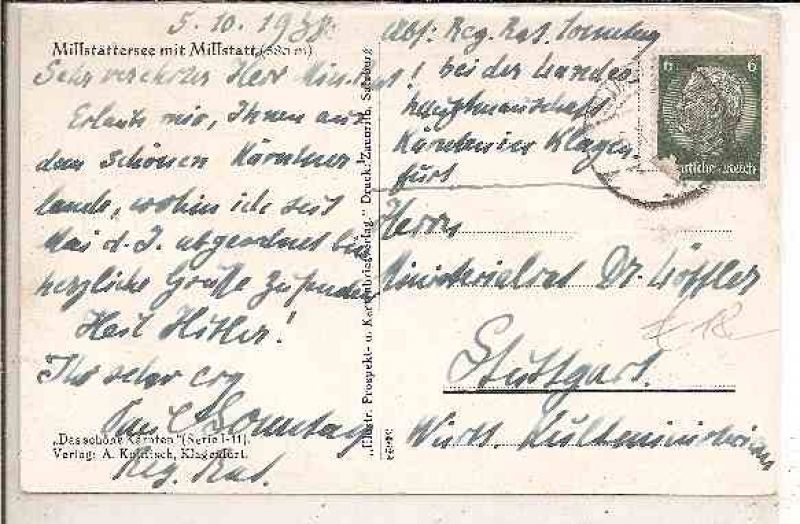 5. 10. 1938.
Millstättersee mit Millstatt (580 m)
Sehr verehrter Herr Min.-Rat!
Erlaube mir, Ihnen aus
dem schönen Kärntner
lande, wohin ich seit
Mai d. J. abgeordnet bin
herzliche Grüße zu senden
Heil Hitler!
Ihr sehr erg
Sonntag
Reg. Rat.
„Das schöne Kärnten" (Serie I-11).
Verlag: A. Kollitsch, Klagenfurt.
„Illustr. Prospekt- u. Kartenbriefverlag." Druck: Zaunrith, Salzburg
Abs: Reg. Rat. Sonntag
bei der Landes
hauptmannschaft
Kärnten in Klagen
furt
Herrn
Ministerialrat Dr. Löffler
Stuttgart.
Württ. Kultministerium
6 6
Deutsches Reich
18